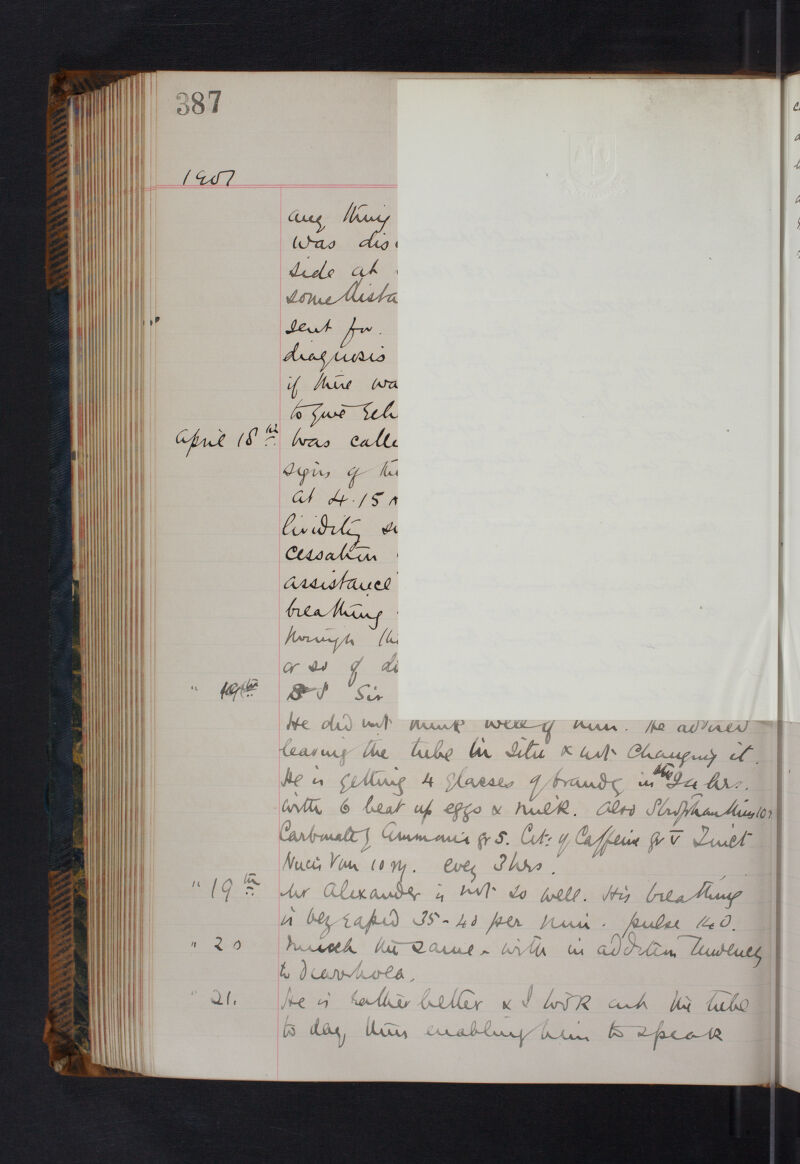 387
1907
any thing
was dis
side at
some dista
sent for.
diagnosis
if there wa
to give
April 18th was calle
signs of the
at 4.15
lividity
cessation
assistance
breathing
through th
or so of di
" 19th Sir
He did not think well of him. He advised
leaving the tube in situ & not changing it.
He is getting 4 glasses of brandy in the 24 hrs.
with 6 beat up eggs & milk. Also Strophanthus 10
Carbonate of Ammonia gr 5. Cit: of Caffein gr v Tinct
Nucis Vom 10 m. every 3 hrs.
" 19th Mr Alexander is not so well. His breathing
is very rapid 35-40 per min. pulse 140.
" 20 Much the same - with in addition tendency
to diarrhoea.
" 21. He is rather better & I took out the tube
to day, thus enabling him to speak